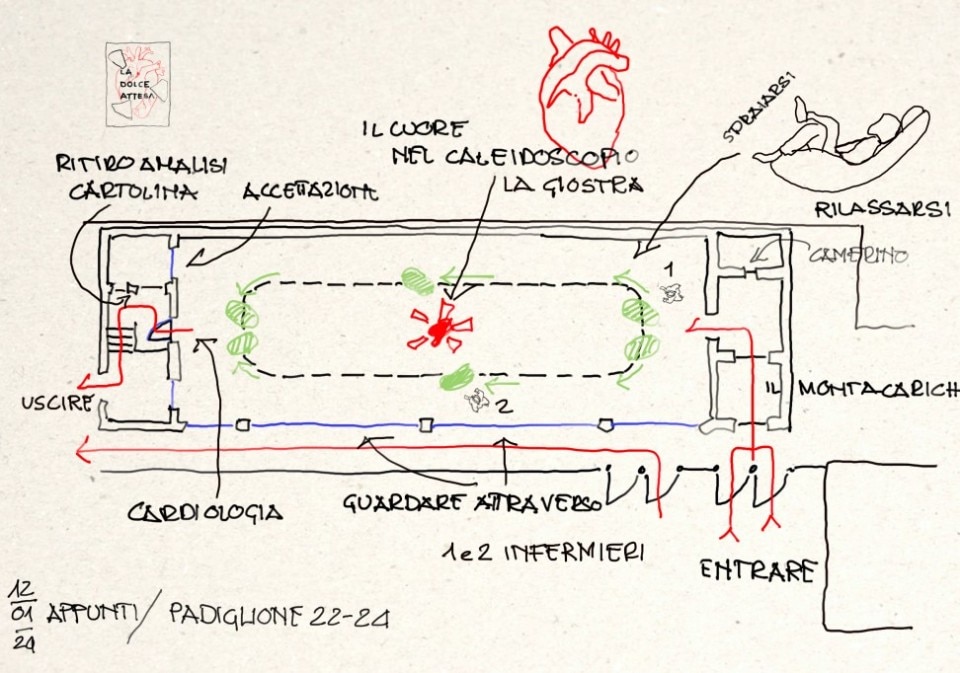 LA
DOLCE
ATTESA
IL CUORE
NEL CALEIDOSCOPIO
LA GIOSTRA
SDRAIARSI
RITIRO ANALISI
CARTOLINA
ACCETTAZIONE
RILASSARSI
CAMERINO
1
USCIRE
IL MONTACARICH
2
CARDIOLOGIA
GUARDARE ATTRAVERSO
1 e 2 INFERMIERI
ENTRARE
12
01
24
APPUNTI / PADIGLIONE 22-24